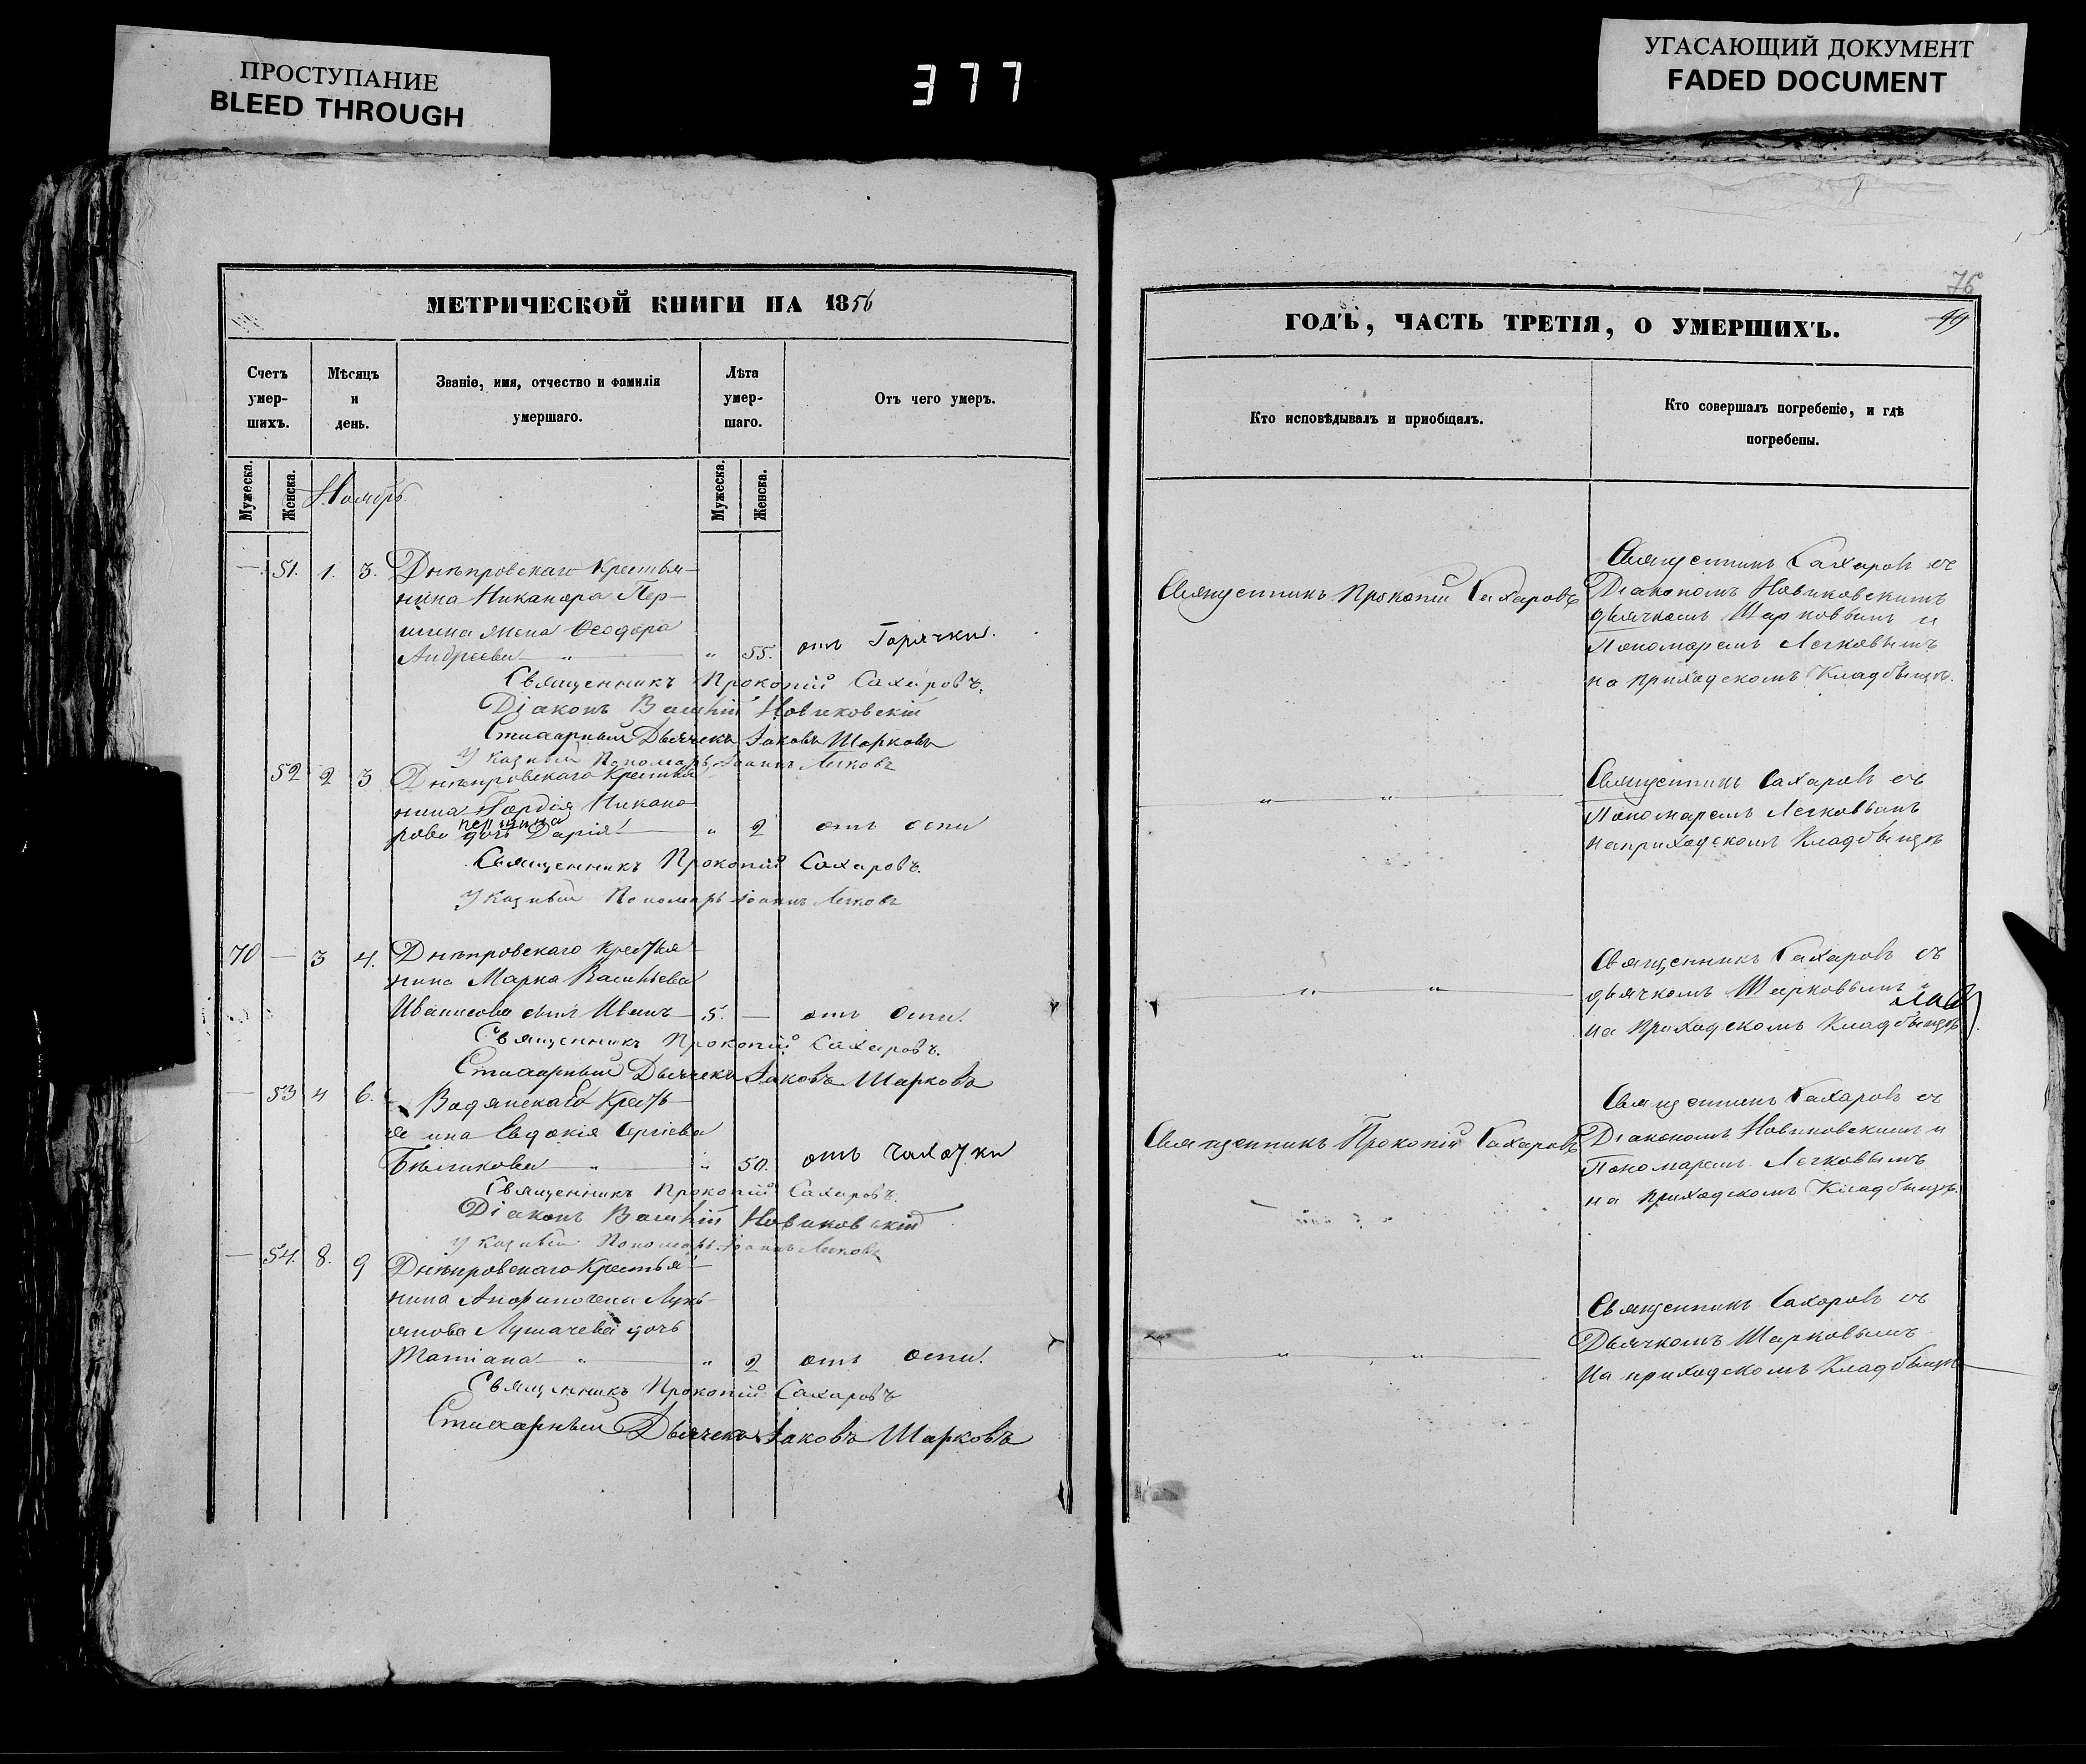 ПРОСТУПАНИЕ
BLEED THROUGH
377
УГАСАЮЩИЙ ДОКУМЕНТ
FADED DOCUMENT
МЕТРИЧЕСКОЙ КНИГИ НА 1856
Счетъ умер-шихъ.
Мѣсяцъ и день.
Званіе, имя, отчество и фамилія умершаго.
Лѣта умер-шаго.
Отъ чего умеръ.
Мужеска. Женска. Ноябрь Мужеска. Женска.
— 51. 1. 3. Днѣпровскаго Крестья-
нина Никанора Пер-
шина жена Ѳеодора
Андреева „ „ 55. отъ Горячки.
Священникъ Прокопій Сахаровъ.
Діаконъ Василій Новиковскій
Стихарный Дьячекъ Іаковъ Шарковъ
Указный Пономарь Іоаннъ Легковъ
52 2 3 Днѣпровскаго Крестья
нина Гордія Никано
першина
рова дочь Дарія „ 2 отъ оспи
Священникъ Прокопій Сахаровъ.
Указный Пономарь Іоаннъ Легковъ
70 — 3 4. Днѣпровскаго Крестья-
нина Марка Васильева
сынъ Иванъ 5. — отъ Оспи.
Священникъ Прокопій Сахаровъ.
Стихарный Дьячекъ Іаковъ Шарковъ
— 53 4 6. Водянскаго Кресть-
я нина Евдокія Сергіева
Бѣликова „ „ 50. отъ Чахотки
Священникъ Прокопій Сахаровъ.
Діаконъ Василій Новиковскій
Указный Пономарь Іоаннъ Легковъ
— 54. 8. 9 Днѣпровскаго Крестья-
нина Лукь-
янова дочь
Татіана „ „ 2 отъ оспи.
Священникъ Прокопій Сахаровъ
Стихарный Дьячекъ Іаковъ Шарковъ
76
ГОДЪ, ЧАСТЬ ТРЕТІЯ, О УМЕРШИХЪ. 49
Кто исповѣдывалъ и приобщалъ.
Кто совершалъ погребеніе, и гдѣ погребены.
Священникъ Прокопій Сахаровъ
Священникъ Сахаровъ съ
Діакономъ Новиковскимъ
дьячкомъ Шарковымъ и
Пономаремъ Легковымъ
на приходскомъ Кладбищѣ.
„ „
Священникъ Сахаровъ съ
Пономаремъ Легковымъ
на приходскомъ Кладбищѣ
„ „
Священникъ Сахаровъ съ
дьячкомъ Шарковымъ
на приходскомъ Кладбищѣ
Священникъ Прокопій Сахаровъ
Священникъ Сахаровъ съ
Діакономъ Новиковскимъ и
Пономаремъ Легковымъ
на приходскомъ Кладбищѣ.
„ „
Священникъ Сахаровъ съ
Дьячкомъ Шарковымъ
На приходскомъ Кладбищѣ